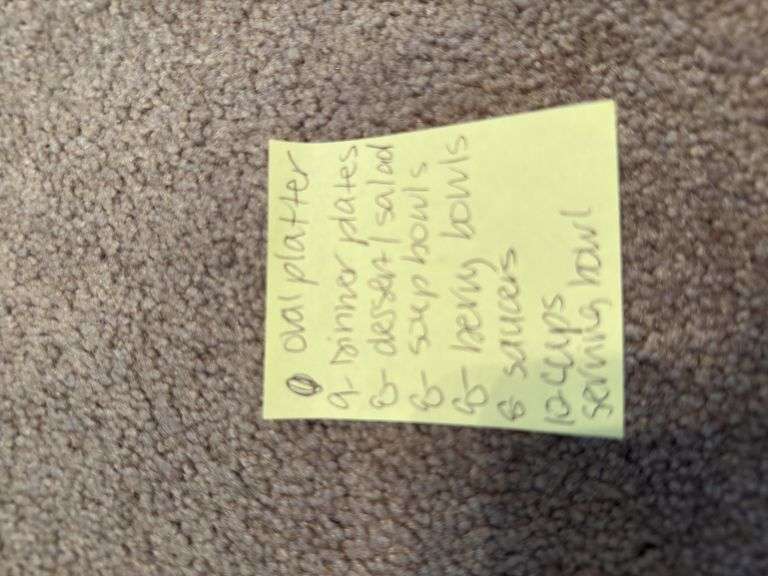 oval platter
9- Dinner plates
8- dessert/salad
8- soup bowls
8- berry bowls
8 saucers
12 cups
serving bowl